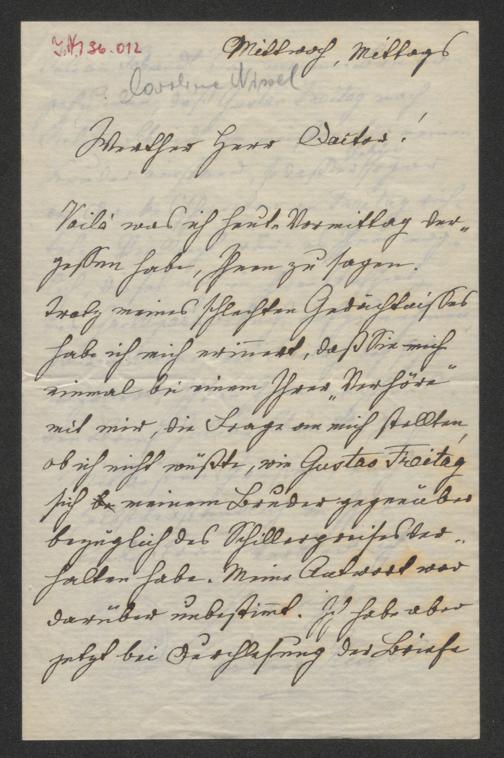 J.N. 136.012
Mittwoch, Mittags
Caroline Nissel
Werther Herr Doctor!
Voilà was ich heute Vormittag ver-
gessen habe, Ihnen zu sagen.
Trotz meines schlechten Gedächtnisses
habe ich mich erinnert, daß Sie mich
einmal bei einem Ihrer „Verhöre"
mit mir, die Frage an mich stellten,
ob ich nicht wüßte, wie Gustav Freitag
sich meinem Bruder gegenüber
bezüglich des Schillerpreises ver-
halten habe. Meine Antwort war
darüber unbestimmt. Ich habe aber
jetzt bei Durchlesung der Briefe